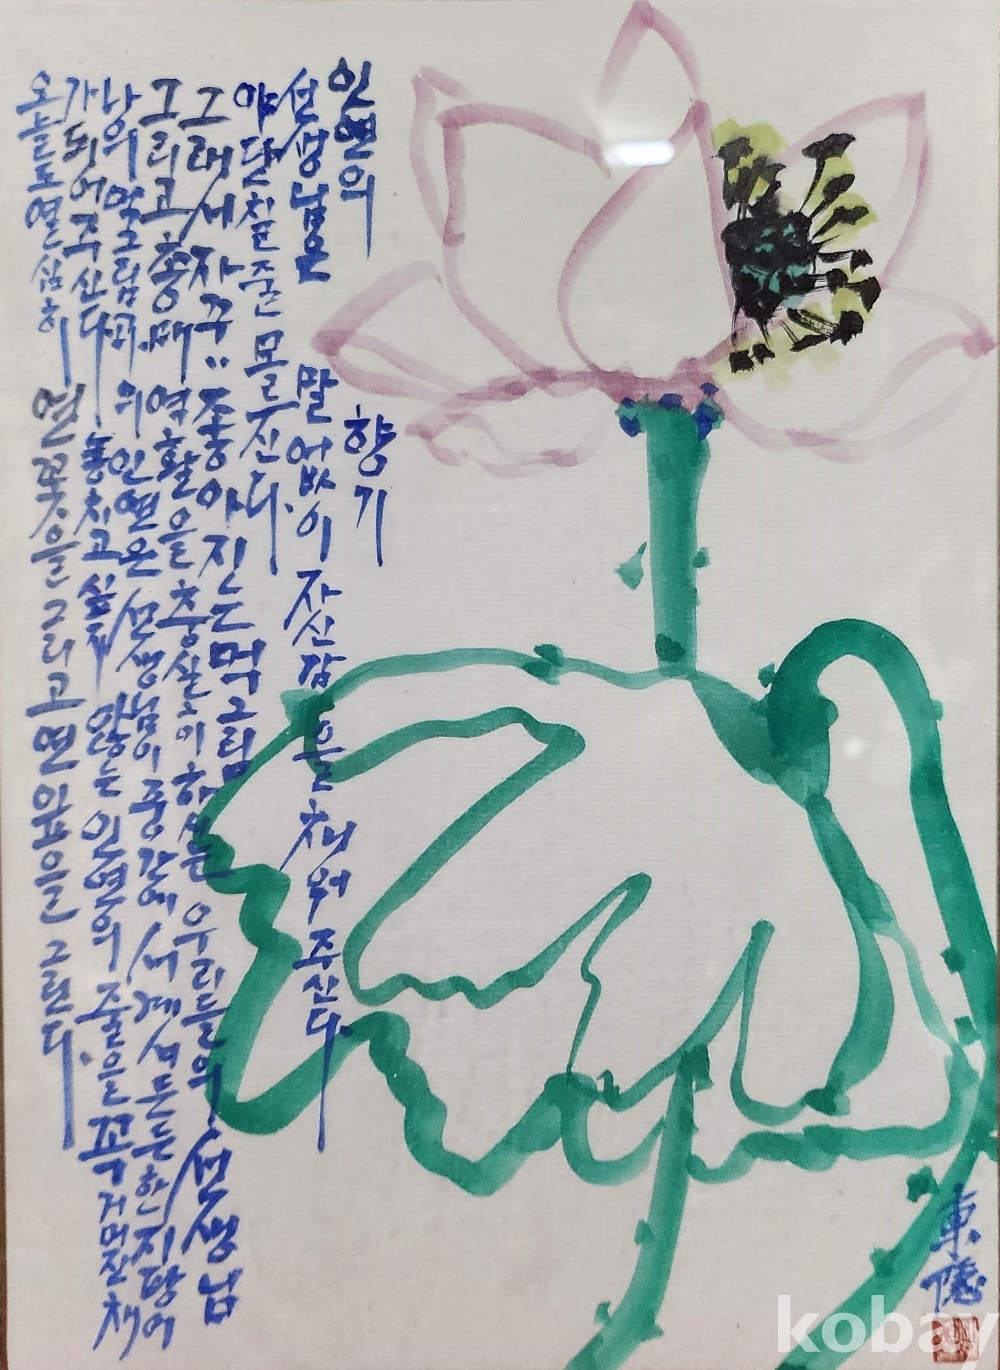 인연의 향기
선생님은 말없이 자신감을 채워주신다.
야단칠 줄 모르신다.
그래서 자꾸〃 좋아지는 먹그림
그리고 총대 역활을 충실히 하시는 우리들의 선생님
먹그림과의 인연은 선생님이 중간에 서계셔 든든한 지팡이
가 되어주신다. 놓치고 싶지 않는 인연의 줄을 꼭 거머쥔채
오늘도 열심히 연꽃을 그리고 연잎을 그린다.
東隱
kobay